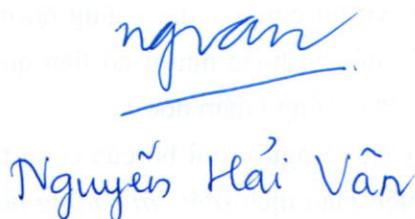 ngvan
Nguyễn Hải Vân